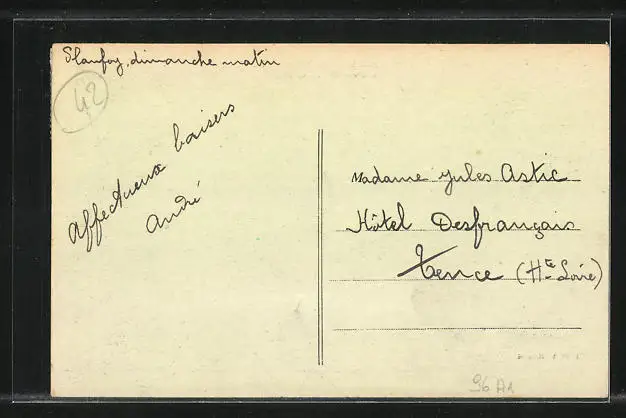 Planfoy, dimanche matin
42
Affectueux baisers
André
Madame Jules Astic
Hôtel Desfrançais
Tence (Hte Loire)
96 A1